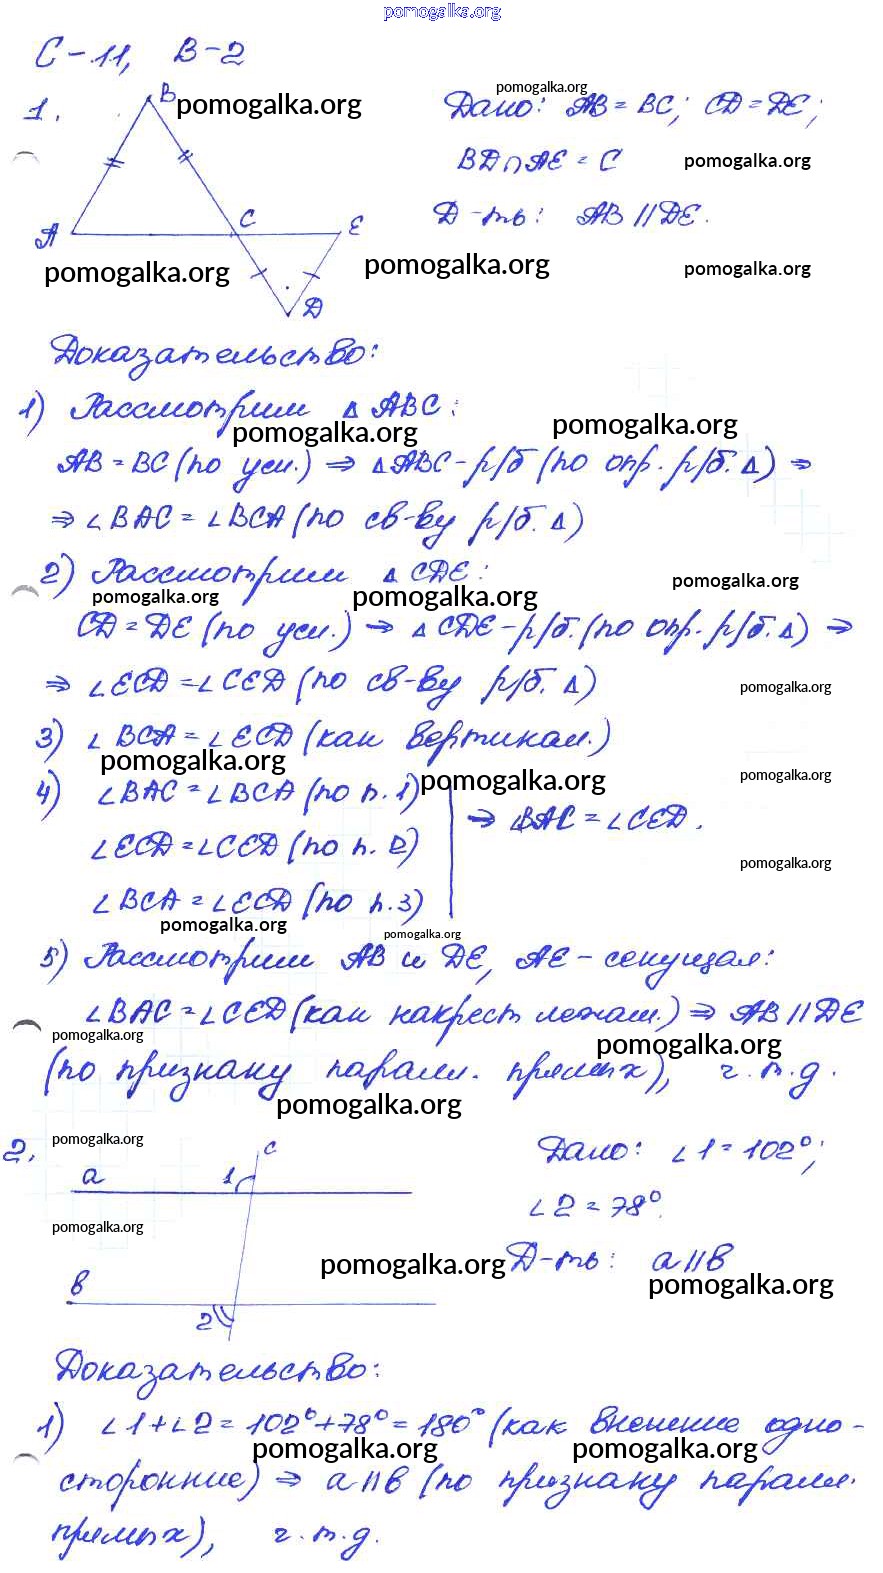 pomogalka.org
С-11, В-2
pomogalka.org
1.
B
pomogalka.org
Дано: AB = BC; CD = DE;
BD∩AE = C
pomogalka.org
Д-ть: AB // DE.
A
C
E
pomogalka.org
pomogalka.org
pomogalka.org
D
Доказательство:
1) Рассмотрим △ ABC:
pomogalka.org
pomogalka.org
AB = BC (по усл.) ⇒ △ABC - р/б (по опр. р/б. △) ⇒
⇒ ∠BAC = ∠BCA (по св-ву р/б. △)
2) Рассмотрим △ CDE:
pomogalka.org
pomogalka.org
pomogalka.org
CD = DE (по усл.) ⇒ △ CDE - р/б. (по опр. р/б. △) ⇒
⇒ ∠ECD = ∠CED (по св-ву р/б. △)
pomogalka.org
3) ∠BCA = ∠ECD (как вертикал.)
pomogalka.org
pomogalka.org
pomogalka.org
4) ∠BAC = ∠BCA (по п. 1)
∠ECD = ∠CED (по п. 2)
⇒ ∠BAC = ∠CED.
pomogalka.org
∠BCA = ∠ECD (по п. 3)
pomogalka.org
pomogalka.org
5) Рассмотрим AB и DE, AE - секущая:
∠BAC = ∠CED (как накрест лежащ.) ⇒ AB // DE
pomogalka.org
pomogalka.org
(по признаку паралл. прямых), ч.т.д.
pomogalka.org
2.
pomogalka.org
c
a
1
Дано: ∠1 = 102°;
∠2 = 78°.
pomogalka.org
pomogalka.org
Д-ть: a // b
pomogalka.org
b
2
Доказательство:
1) ∠1 + ∠2 = 102° + 78° = 180° (как внешние одно-
pomogalka.org
pomogalka.org
сторонние) ⇒ a // b (по признаку паралл.
прямых), ч.т.д.